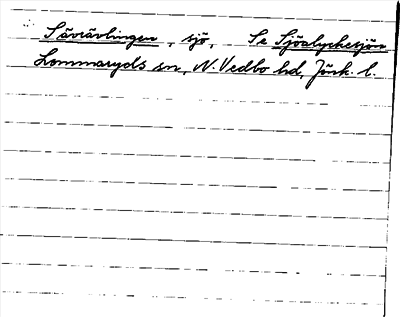 Sävrävlingen, sjö, Se Sjöalyckesjön
Lommaryds sn, N. Vedbo hd, Jönk. l.